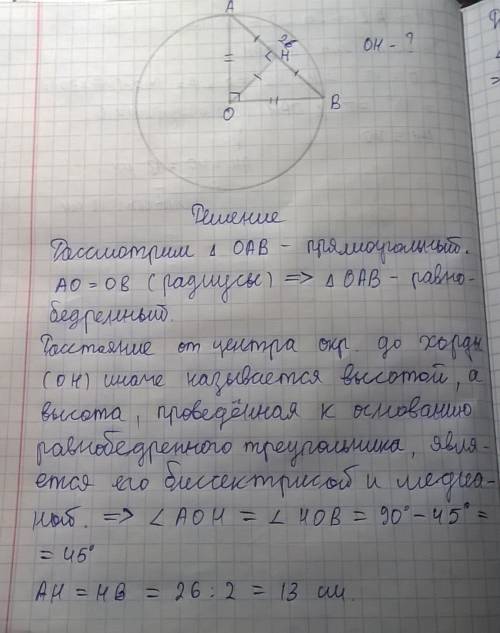 A
26
H
OH - ?
O
B
Решение
Рассмотрим △ OAB - прямоугольный.
AO = OB (радиусы) => △ OAB - равно-
бедренный.
Расстояние от центра окр. до хорды
(OH) иначе называется высотой, а
высота, проведённая к основанию
равнобедренного треугольника, явля-
ется его биссектрисой и медиа-
ной. => ∠ AOH = ∠ HOB = 90° - 45° =
= 45°
AH = HB = 26 : 2 = 13 см.